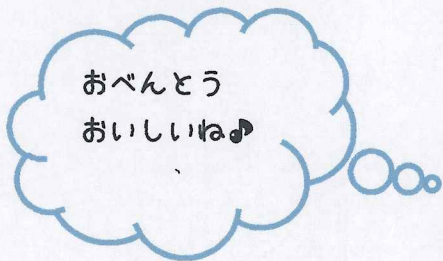 おべんとう
おいしいね♪